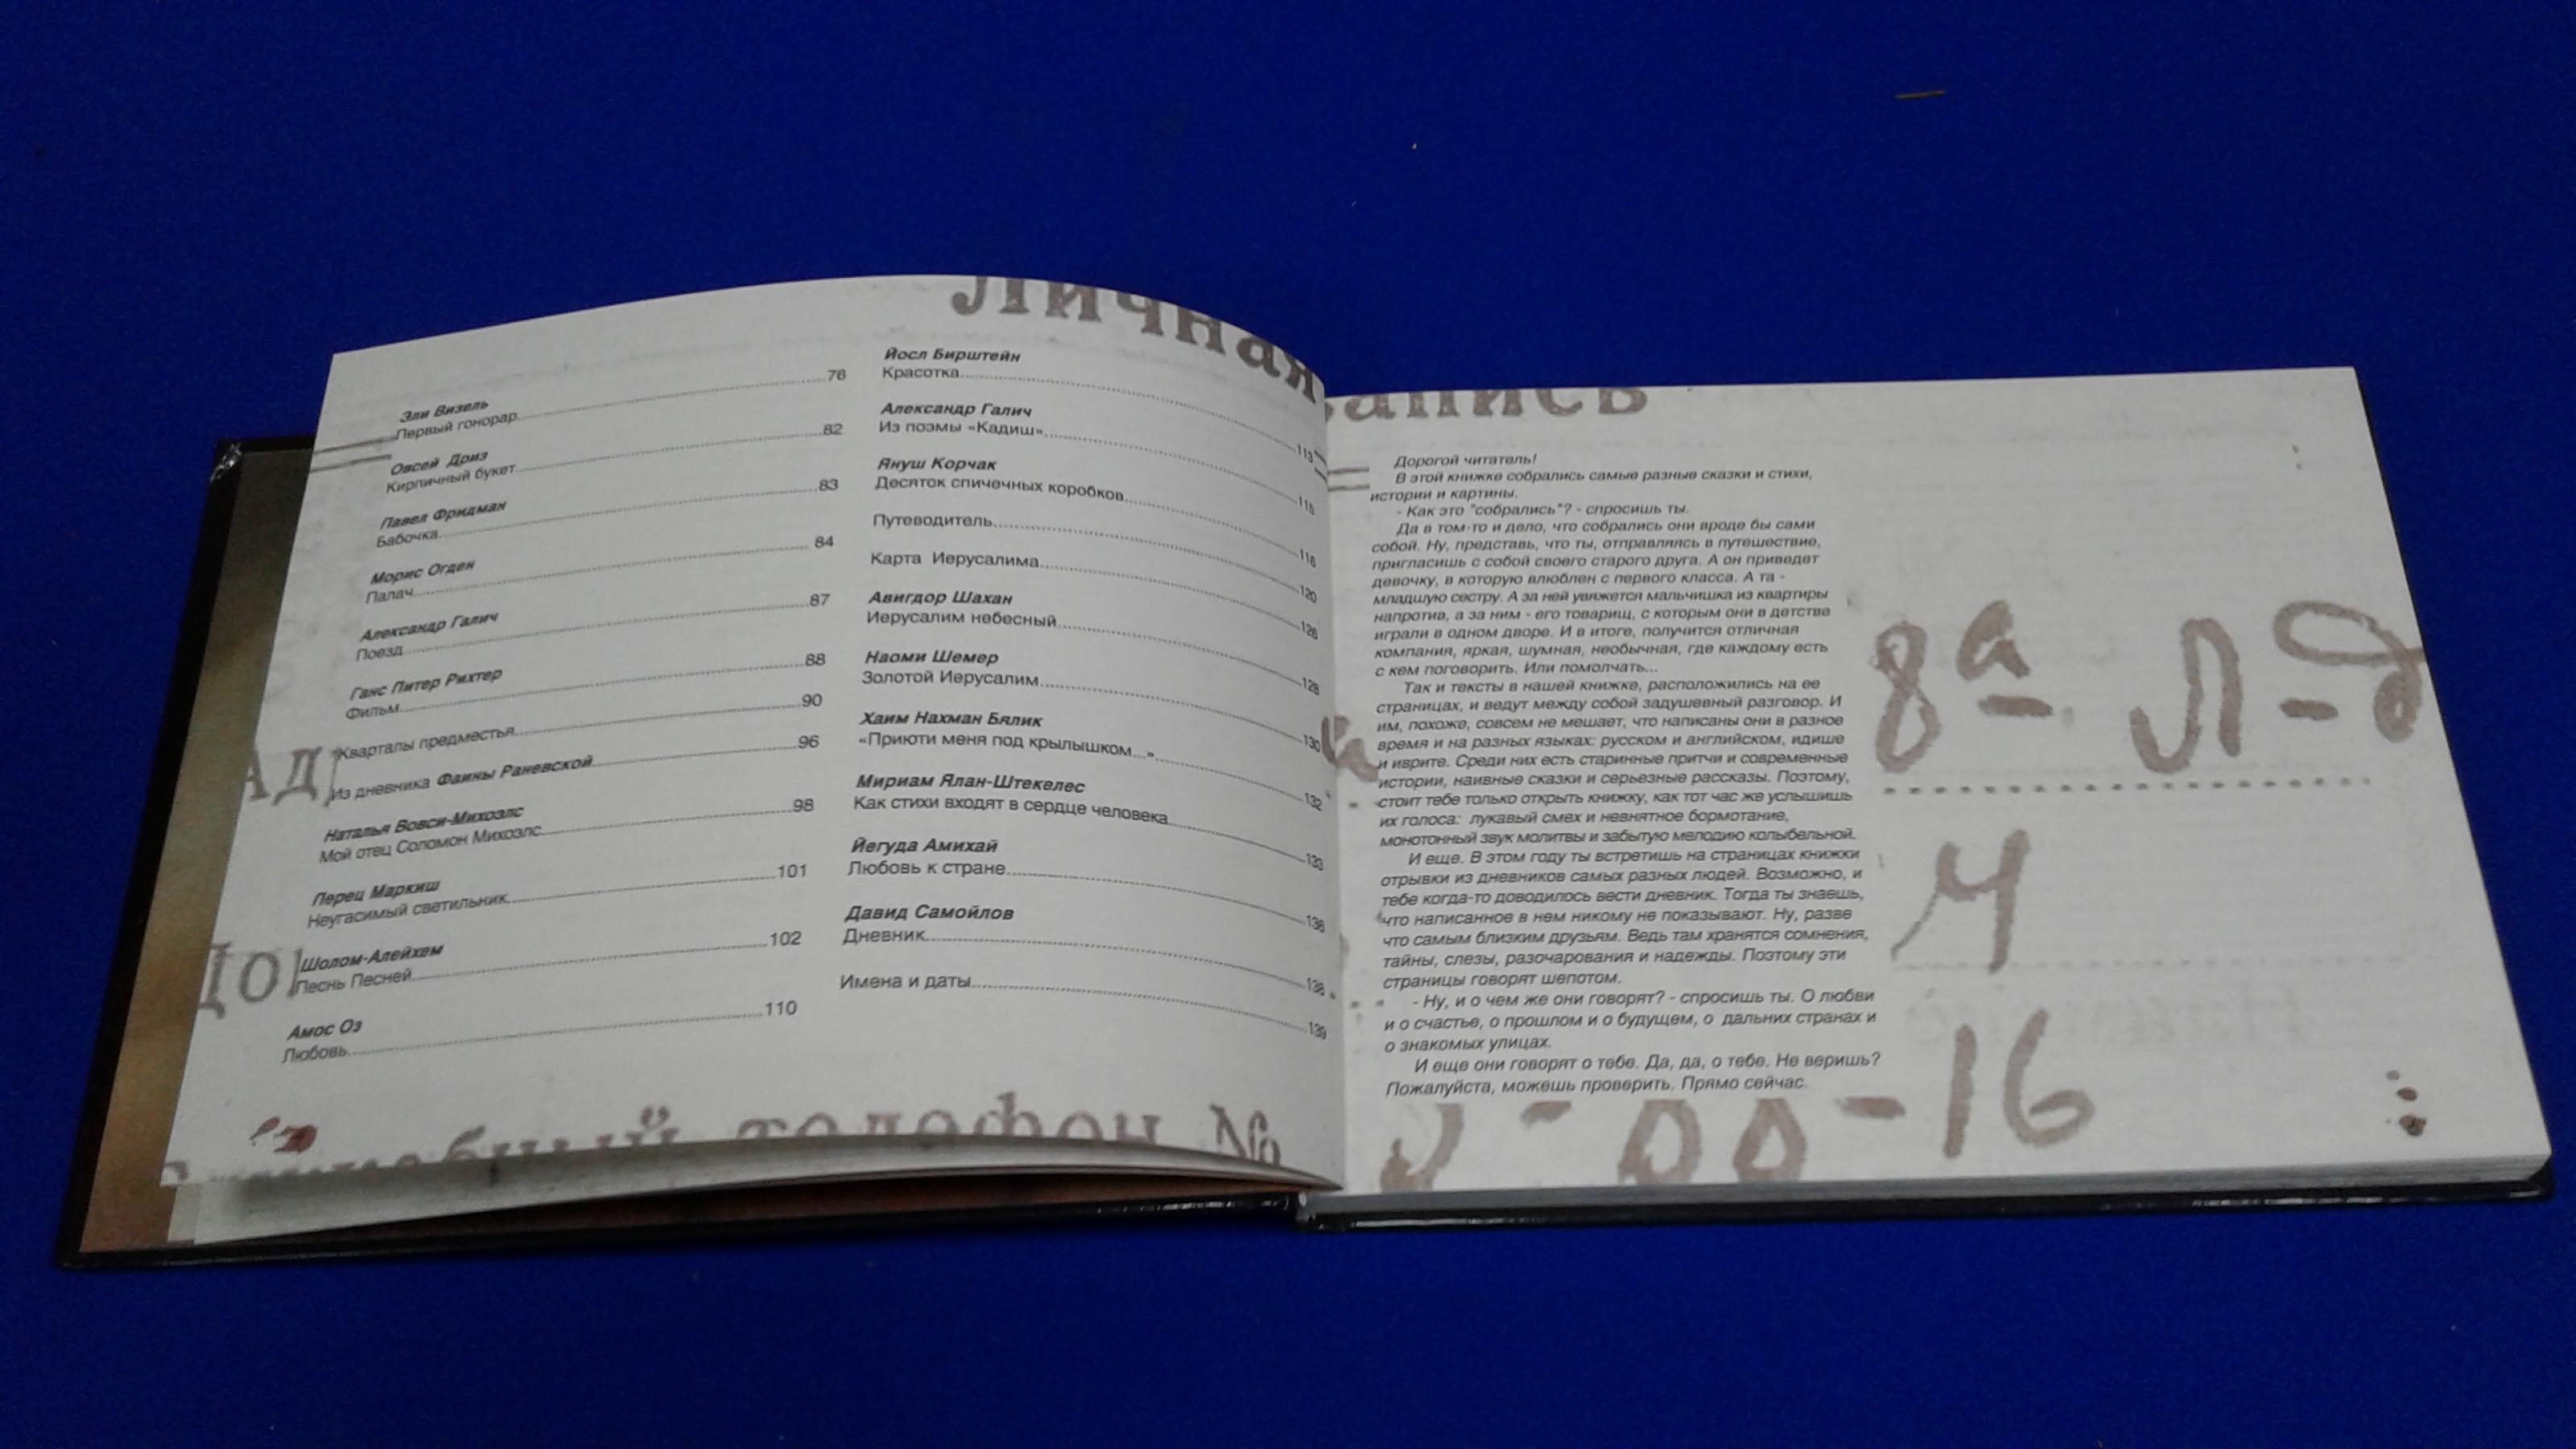 Личная
Эли Визель
Первый гонорар 76
Овсей Дриз
Кирпичный букет 82
Павел Фридман
Бабочка 83
Морис Огден
Палач 84
Александр Галич
Поезд 87
Ганс Питер Рихтер
Фильм 88
Кварталы предместья 90
Из дневника Фаины Раневской 96
Наталья Вовси-Михоэлс
Мой отец Соломон Михоэлс 98
Перец Маркиш
Неугасимый светильник 101
Шолом-Алейхем
Песнь Песней 102
Амос Оз
Любовь 110
Йосл Бирштейн
Красотка 113
Александр Галич
Из поэмы «Кадиш» 115
Януш Корчак
Десяток спичечных коробков 116
Путеводитель 120
Карта Иерусалима 126
Авигдор Шахан
Иерусалим небесный 128
Наоми Шемер
Золотой Иерусалим 130
Хаим Нахман Бялик
«Приюти меня под крылышком...» 132
Мириам Ялан-Штекелес
Как стихи входят в сердце человека 133
Йегуда Амихай
Любовь к стране 136
Давид Самойлов
Дневник 138
Имена и даты 139
телефон №
запись
Дорогой читатель!
В этой книжке собрались самые разные сказки и стихи,
истории и картины.
- Как это "собрались"? - спросишь ты.
Да в том-то и дело, что собрались они вроде бы сами
собой. Ну, представь, что ты, отправляясь в путешествие,
пригласишь с собой своего старого друга. А он приведет
девочку, в которую влюблен с первого класса. А та -
младшую сестру. А за ней увяжется мальчишка из квартиры
напротив, а за ним - его товарищ, с которым они в детстве
играли в одном дворе. И в итоге, получится отличная
компания, яркая, шумная, необычная, где каждому есть
с кем поговорить. Или помолчать...
Так и тексты в нашей книжке, расположились на ее
страницах, и ведут между собой задушевный разговор. И
им, похоже, совсем не мешает, что написаны они в разное
время и на разных языках: русском и английском, идише
и иврите. Среди них есть старинные притчи и современные
истории, наивные сказки и серьезные рассказы. Поэтому,
стоит тебе только открыть книжку, как тот час же услышишь
их голоса: лукавый смех и невнятное бормотание,
монотонный звук молитвы и забытую мелодию колыбельной.
И еще. В этом году ты встретишь на страницах книжки
отрывки из дневников самых разных людей. Возможно, и
тебе когда-то доводилось вести дневник. Тогда ты знаешь,
что написанное в нем никому не показывают. Ну, разве
что самым близким друзьям. Ведь там хранятся сомнения,
тайны, слезы, разочарования и надежды. Поэтому эти
страницы говорят шепотом.
- Ну, и о чем же они говорят? - спросишь ты. О любви
и о счастье, о прошлом и о будущем, о дальних странах и
о знакомых улицах.
И еще они говорят о тебе. Да, да, о тебе. Не веришь?
Пожалуйста, можешь проверить. Прямо сейчас.
8а л-д
4
-00-16